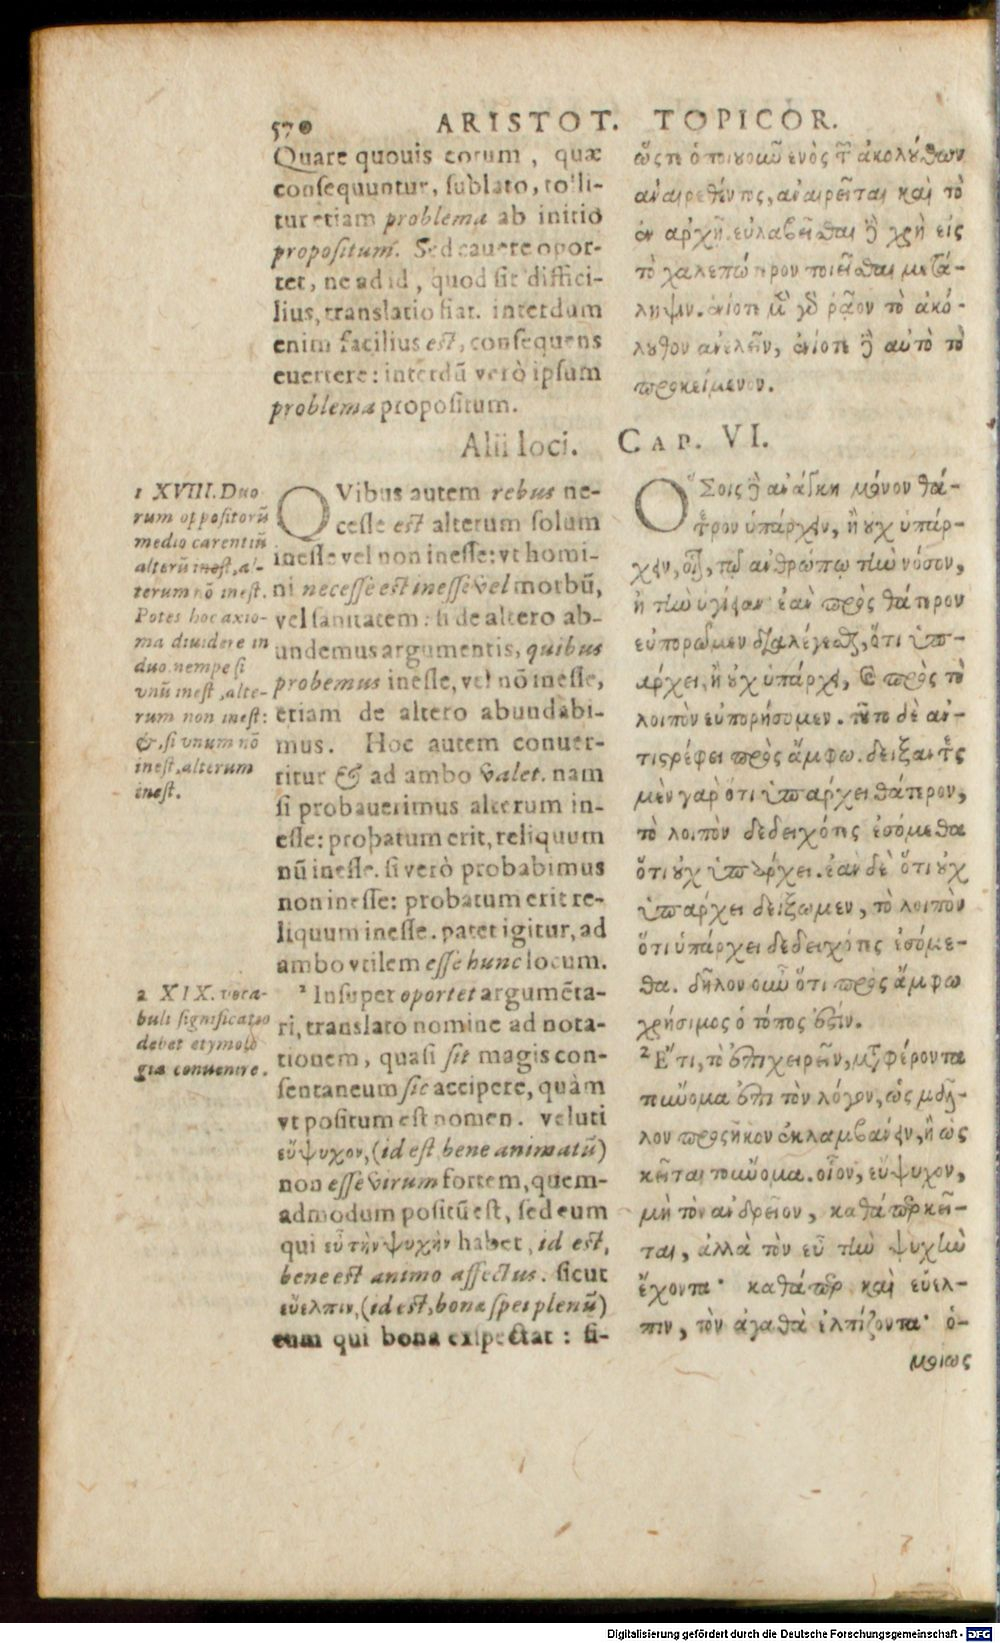 570 ARISTOT. TOPICOR.
Quare quouis eorum, quæ
consequuntur, sublato, tolli-
tur etiam problema ab initio
propositum. Sed cauere opor-
tet, ne ad id, quod sit diffici-
lius, translatio fiat. interdum
enim facilius est, consequens
euertere: interdū verò ipsum
problema propositum.
ὥςτε ὁποιουοῦν ἑνὸς τῶν ἀκολούθων
ἀναιρεθέντος, ἀναιρεῖται καὶ τὸ
ἐν ἀρχῇ. εὐλαβεῖσθαι δὲ χρὴ εἰς
τὸ χαλεπώτερον ποιεῖσθαι μετά-
ληψιν. ἐνίοτε μὲν γὰρ ῥᾷον τὸ ἀκό-
λουθον ἀνελεῖν, ἐνίοτε δὲ αὐτὸ τὸ
προκείμενον.
Alii loci. CAP. VI.
1 XVIII. Duo
rum oppositorū
medio carentiū
alterū inest, al-
terum nō inest.
Potes hoc axio-
ma diuidere in
duo. nempe si
vnū inest, alte-
rum non inest:
&, si vnum nō
inest, alterum
inest.
QVibus autem rebus ne-
cesse est alterum solum
inesse vel non inesse: vt homi-
ni necesse est inesse vel morbū,
vel sanitatem: si de altero ab-
undemus argumentis, quibus
probemus inesse, vel nō inesse,
etiam de altero abundabi-
mus. Hoc autem conuer-
titur & ad ambo valet. nam
si probauerimus alterum in-
esse: probatum erit, reliquum
nū inesse. si verò probabimus
non inesse: probatum erit re-
liquum inesse. patet igitur, ad
ambo vtilem esse hunc locum.
2 XIX. voca-
buli significatio
debet etymolo
gia conuenire.
² Insuper oportet argumēta-
ri, translato nomine ad nota-
tionem, quasi sit magis con-
sentaneum sic accipere, quàm
vt positum est nomen. veluti
εὔψυχον, (id est bene animatū)
non esse virum fortem, quem-
admodum positū est, sed eum
qui εὖ τὴν ψυχὴν habet, id est,
bene est animo affectus. sicut
εὔελπιν, (id est, bonæ spei plenū)
eum qui bona exspectat: si-
Ὅσοις δὲ ἀνάγκη μόνον θά-
τερον ὑπάρχειν, ἢ οὐχ ὑπάρ-
χειν, οἷον, τῷ ἀνθρώπῳ τὴν νόσον,
ἢ τὴν ὑγίειαν· ἐὰν πρὸς θάτερον
εὐπορῶμεν διαλέγεσθαι, ὅτι ὑπ-
άρχει, ἢ οὐχ ὑπάρχει, καὶ πρὸς τὸ
λοιπὸν εὐπορήσομεν. τοῦτο δὲ ἀν-
τιστρέφει πρὸς ἄμφω. δείξαντες
μὲν γὰρ ὅτι ὑπάρχει θάτερον,
τὸ λοιπὸν δεδειχότες ἐσόμεθα
ὅτι οὐχ ὑπάρχει. ἐὰν δὲ ὅτι οὐχ
ὑπάρχει δείξωμεν, τὸ λοιπὸν
ὅτι ὑπάρχει δεδειχότες ἐσόμε-
θα. δῆλον οὖν ὅτι πρὸς ἄμφω
χρήσιμος ὁ τόπος ἐστίν.
² Ἔτι, τὸ ἐπιχειρεῖν, μεταφέροντα
τοὔνομα ἐπὶ τὸν λόγον, ὡς μάλι-
λον προςῆκον ἐκλαμβάνειν, ἢ ὡς
κεῖται τοὔνομα. οἷον, εὔψυχον,
μὴ τὸν ἀνδρεῖον, καθάπερ κεῖ-
ται, ἀλλὰ τὸν εὖ τὴν ψυχὴν
ἔχοντα· καθάπερ καὶ εὔελ-
πιν, τὸν ἀγαθὰ ἐλπίζοντα· ὁ-
μοίως
Digitalisierung gefördert durch die Deutsche Forschungsgemeinschaft - DFG